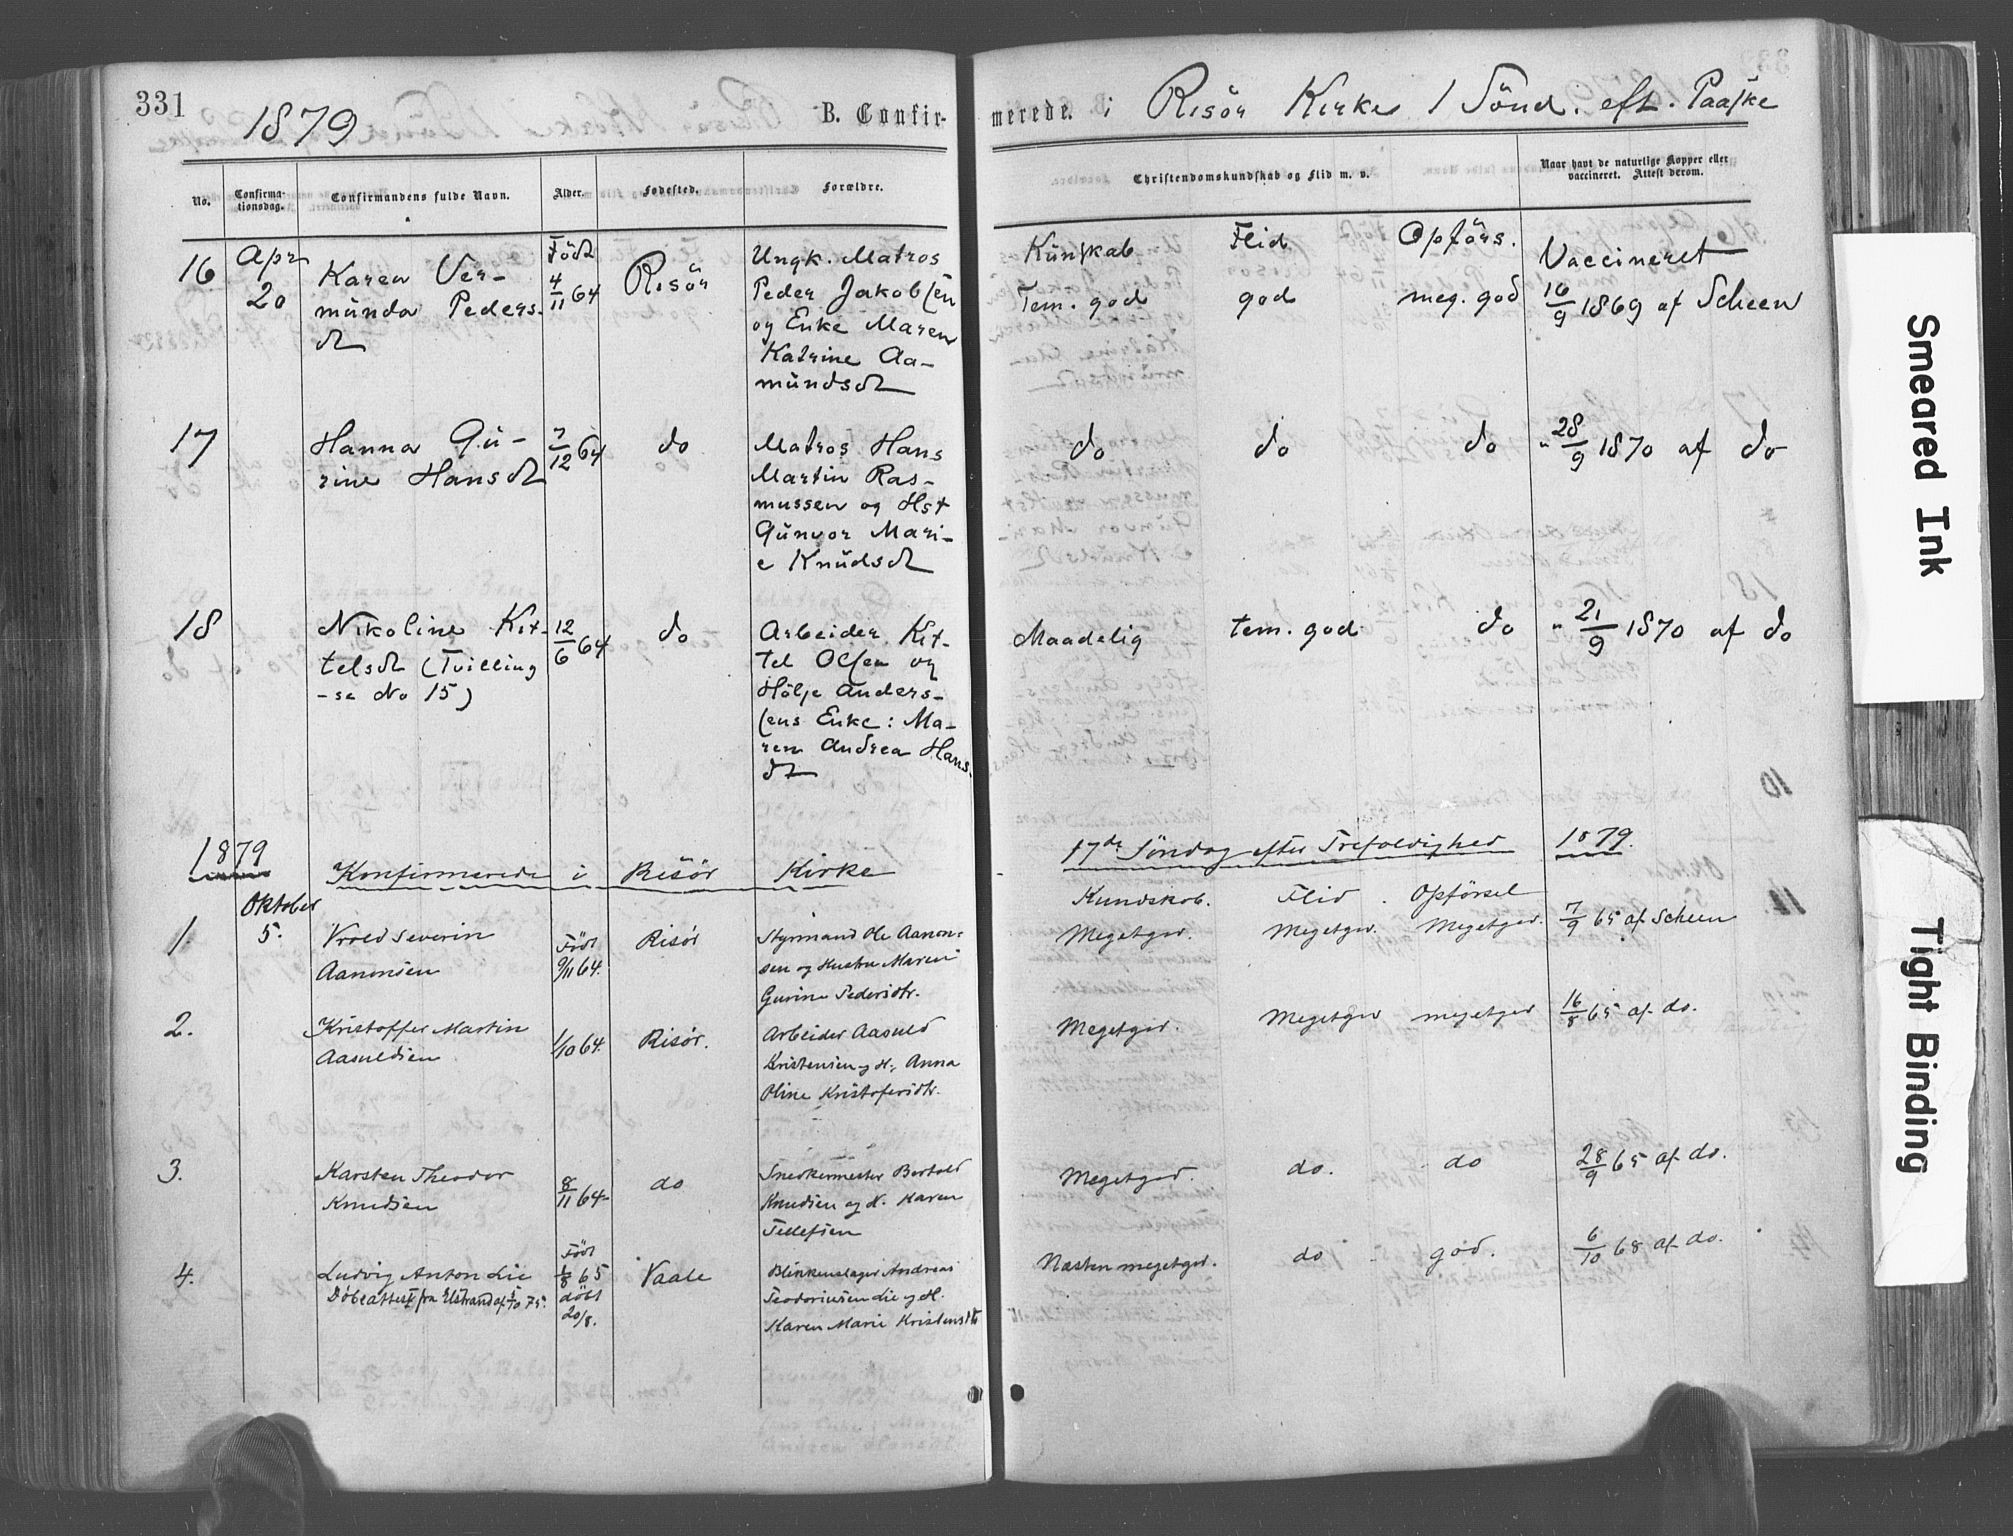 331
1879
B. Confirmerede. i Risör Kirke 1 Sönd. eft. Paaske
No.
Confirmationsdag.
Confirmandens fulde Navn.
Alder.
Fødested.
Forældre.
Christendomskundskab og Flid m. v.
Naar havt de naturlige Kopper eller
vaccineret. Attest derom.
16
Apr
20
Karen Ver-
munda Peders-
dt
Födt
4/11 64
Risör
Ungk. Matros
Peder Jakobsen
og Enke Maren
Katrine Aa-
mundsdt
Kunskab Flid Opförs.
Tem. god god meg. god
Vaccineret
16/9 1869 af Scheen
17
Hanna Gu-
rine Hansdt
7/12 64
do
Matros Hans
Martin Ras-
mussen og Hst
Gunvor Mari-
e Knudsdt
do do do
" 28/9 1870 af do
18
Nikoline Kit-
telsdt (Tvilling
-se No 15)
12/6 64
do
Arbeider Kit-
tel Olsen og
Hölje Anders-
sens Enke: Ma-
ren Andrea Hans-
dt
Maadelig tem. god do
" 21/9 1870 af do
1879
Konfirmerede i Risör Kirke 17de Søndag efter Trefoldighed 1879.
Oktober
Kundskab. Flid. Opførsel
1. 5.
Vrold Severin
Aanonsen
Født
9/11 64.
Risør
Styrmand Ole Aanon-
sen og Hustru Maren
Gurine Pedersdtr.
Megetgod. Megetgod. Megetgod.
7/9 65 af Scheen
2.
Kristoffer Martin
Aasuldsen
1/10 64.
Risør.
Arbeider Aasuld
Kristensen og H. Anna
Oline Kristofersdtr.
Megetgod. Megetgod megetgod
16/8 65 af do.
3.
Karsten Theodor
Knudsen
8/11 64-
do
Snedkermester Bertold
Knudsen og H. Karen
Tellefsen
Megetgod. do. do
28/9 65 af do.
4.
Ludvig Anton Lie
Døbeattest fra
Født
1/8 65
døbt
20/8.
Vaale
Blikkenslager Andreas
Teodoriusen Lie og H.
Karen Marie Kristensdtr
Næsten megetgod. do god.
6/10 68 af do.
Smeared Ink
Tight Binding